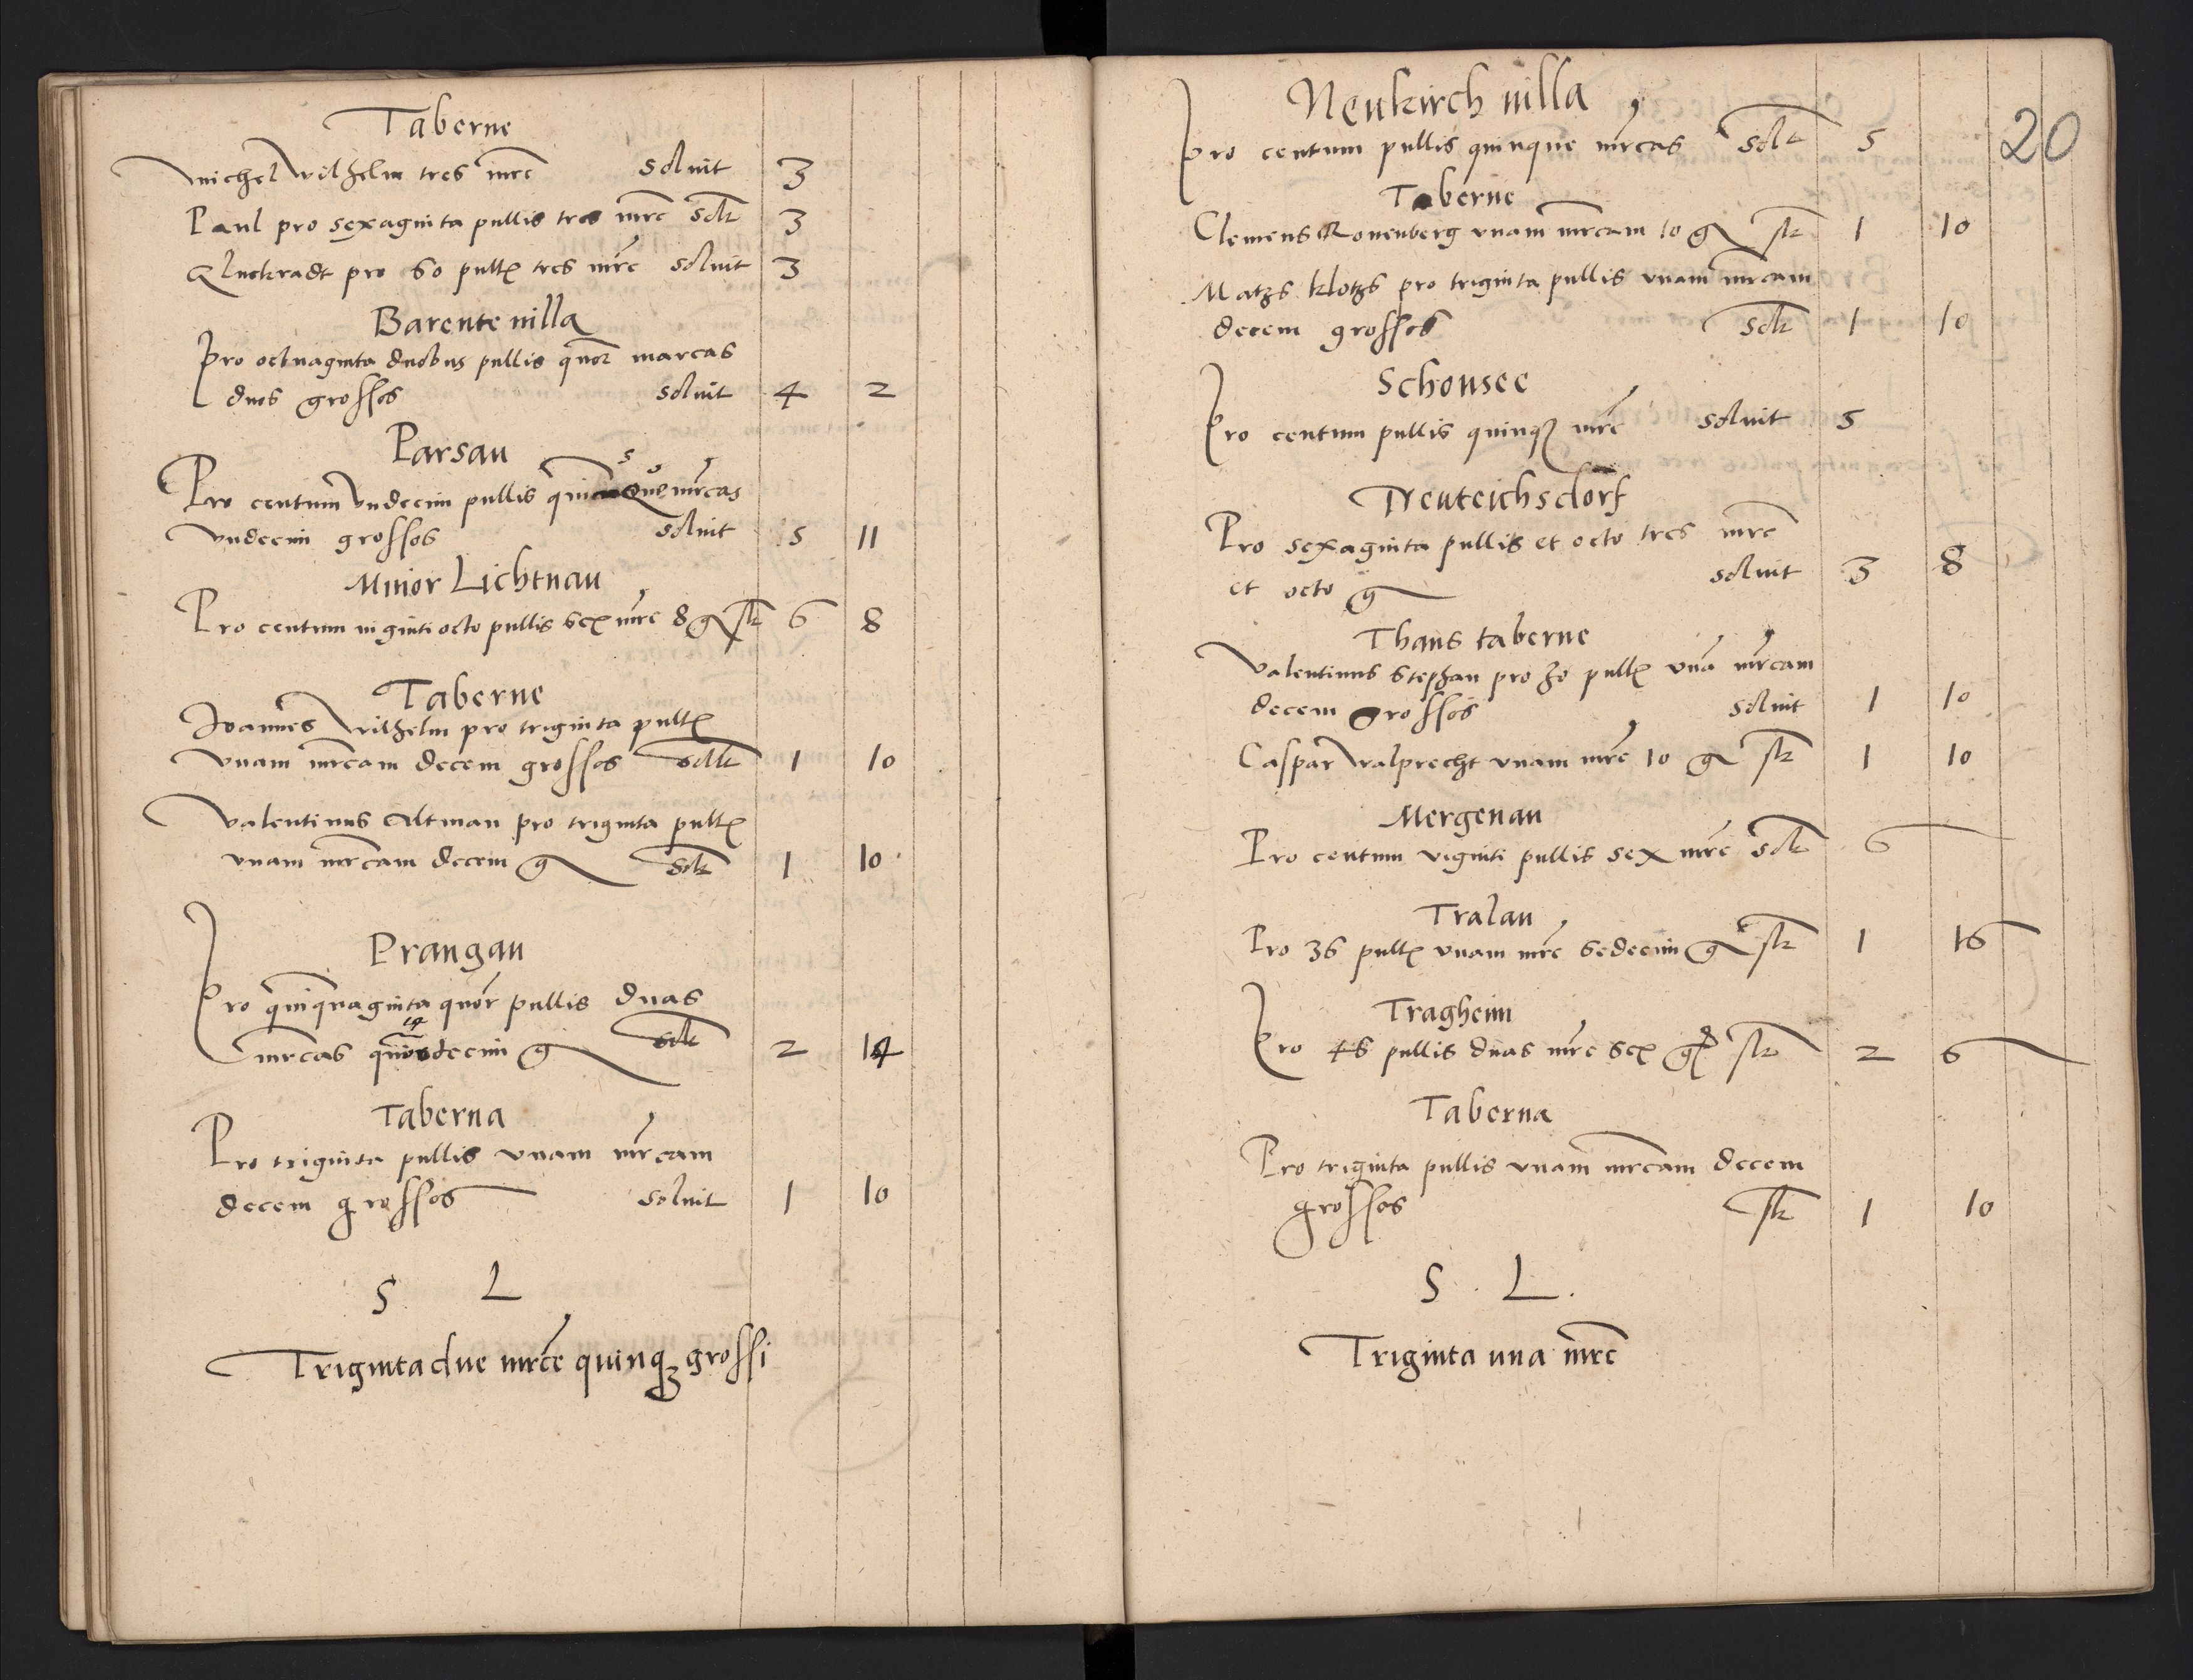 Taberne
Michel Wilhelm tres mrc soluit 3
Paul pro sexaginta pullis tres mrc solt 3
Gluckradt pro 60 pull tres mrc soluit 3
Barente uilla
Pro octuaginta duobus pullis quor marcas
duos grossos soluit 4 2
Parsau
Pro centum vndecim pullis quinque mrcas
vndecim grossos soluit 5 11
Minor Lichtnau
Pro centum uiginti octo pullis sex mrc 8 g st 6 8
Taberne
Joannes Wilhelm pro triginta pull
vnam mrcam decem grossos solt 1 10
Valentinus Altman pro triginta pull
vnam mrcam decem g solt 1 10
Prangau
Pro quinquaginta quor pullis duas
14
mrcas decim g solt 2 14
Taberna
Pro triginta pullis vnam mrcam
decem grossos soluit 1 10
S L
Triginta due mrce quinq grossi
20
Neukirch uilla
Pro centum pullis quinque mrcas solt 5
Taberne
Clemens Ronenberg vnam mrcam 10 g st 1 10
Matzs klotzs pro triginta pullis vnam mrcam
decem grossos solt 1 10
Schonsee
Pro centum pullis quinq mrc soluit 5
Treuteichsdorf
Pro sexaginta pullis et octo tres mrc
et octo g soluit 3 8
Thans taberne
Valentinus Stephan pro 30 pull vna mrcam
decem grossos soluit 1 10
Caspar Walprecht vnam mrc 10 g st 1 10
Mergenau
Pro centum viginti pullis sex mrc solt 6
Tralau
Pro 36 pull vnam mrc sedecim g st 1 16
Tragheim
Pro 46 pullis duas mrc sex g st 2 6
Taberna
Pro triginta pullis vnam mrcam decem
grossos st 1 10
S. L.
Triginta una mrc